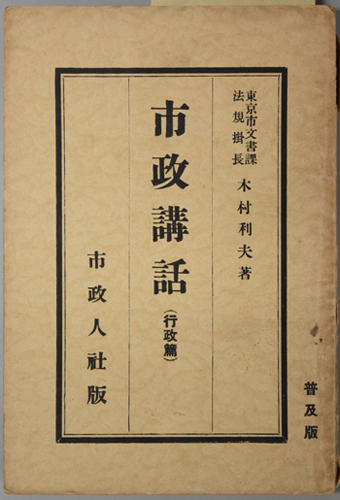 東京市文書課
法規掛長
木村利夫著
市政講話
(行政篇)
市政人社版
普及版